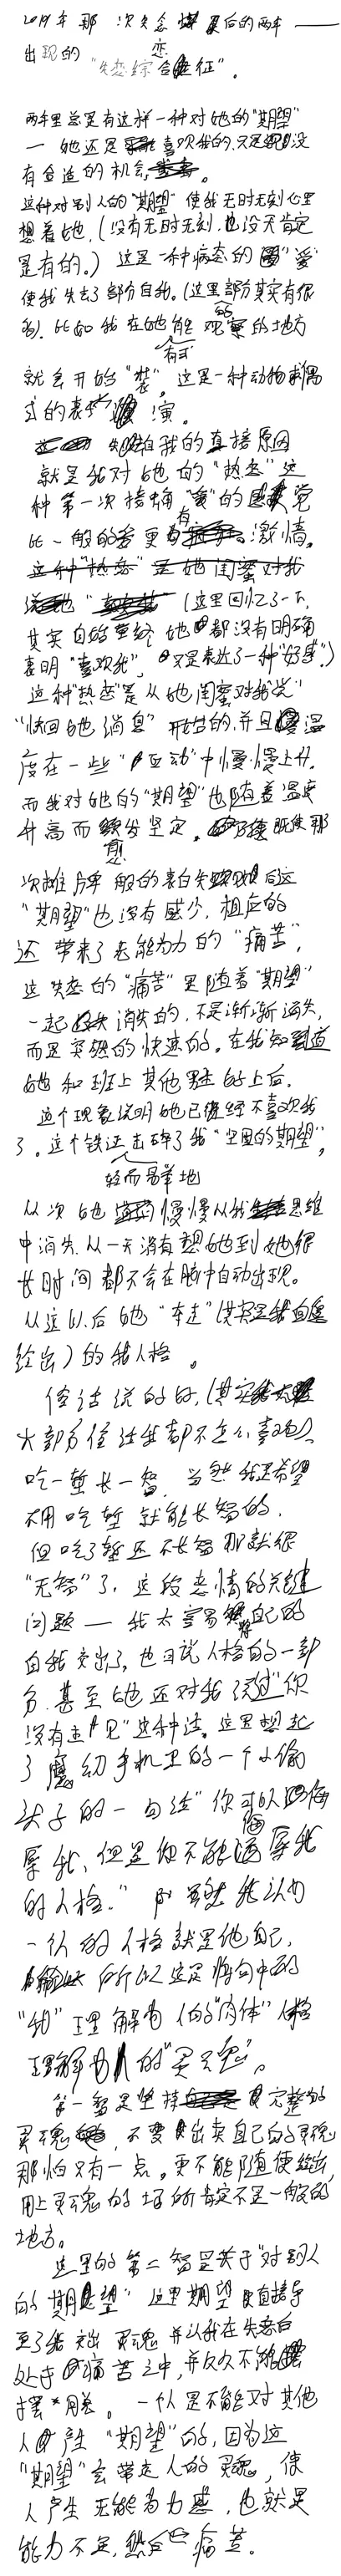 2019年那一次失恋 最后的两年——
出现的"失恋综合症征"。
两年里总是有这样一种对她的"期望"
—她还是喜欢我的,只是没
有合适的机会。
这种对别人的"期望"使我无时无刻心里
想着她,(没有无时无刻,也没天肯定
是有的。)这是一种病态的"爱"
使我失去了部分自我。(这里部分其实有很
多)。比如我在她能观察的地方
就会开始"装",这是一种动物求偶
式的表演。
失自我的直接原因
就是我对她的"热恋"这
种第一次接触"爱"的感觉
比一般的爱更有激情。
(这里回忆了一下,
其实自始至终她都没有明确
表明"喜欢我",只是表达了一种"好感"。)
这种"热恋"是从她闺蜜对我说
"快回她消息"开始的,并且温
度在一些"互动"中慢慢上升。
而我对她的"期望"也随着温度
升高而愈发坚定。既使那
次摊牌般的表白失败后这
"期望"也没有减少,相应的
还带来了无能为力的"痛苦",
这失恋的"痛苦"是随着"期望"
一起消失的,不是渐渐消失,
而是突然的快速的。在我知道
她和班上其他男生好上后。
这个现象说明她已经不喜欢我
了。这个铁证击碎了我"坚固的期望",
轻而易举地
从次她慢慢从我思维
中消失,从一天没有想她到她很
长时间都不会在脑中自动出现。
从这以后她"带走"(其实是我自愿
给出)的我人格。
俗话说的好,(其实
大部分俗话我都不怎么喜欢)。
吃一堑长一智,当然我是希望
不用吃堑就能长智的,
但吃了堑还不长智那就很
"无智"了,这段恋情的关键
问题——我太容易将自己的
自我交出了,也可说人格的一部
分,甚至她还对我说过"你
没有主见"这种话。这里想起
了魔幻手机里的一个小偷
头子的一句话"你可以侮
辱我,但是你不能侮辱我
的人格。"虽然我认为
一个人的人格就是他自己,
所以这是将句中的
"我"理解为人的"肉体"人格
理解为人的"灵魂"。
第一智是坚持完整的
灵魂,不要出卖自己的灵魂
那怕只有一点。更不能随便给出,
用上灵魂的场所肯定不是一般的
地方。
这里的第二智是关于"对别人
的期望"这里期望直接导
至了我交出灵魂并让我在失恋后
处于痛苦之中,并久久不能
摆脱。一个人是不能对其他
人产生"期望"的,因为这
"期望"会带走人的灵魂,使
人产生无能为力感,也就是
能力不足,然后痛苦。